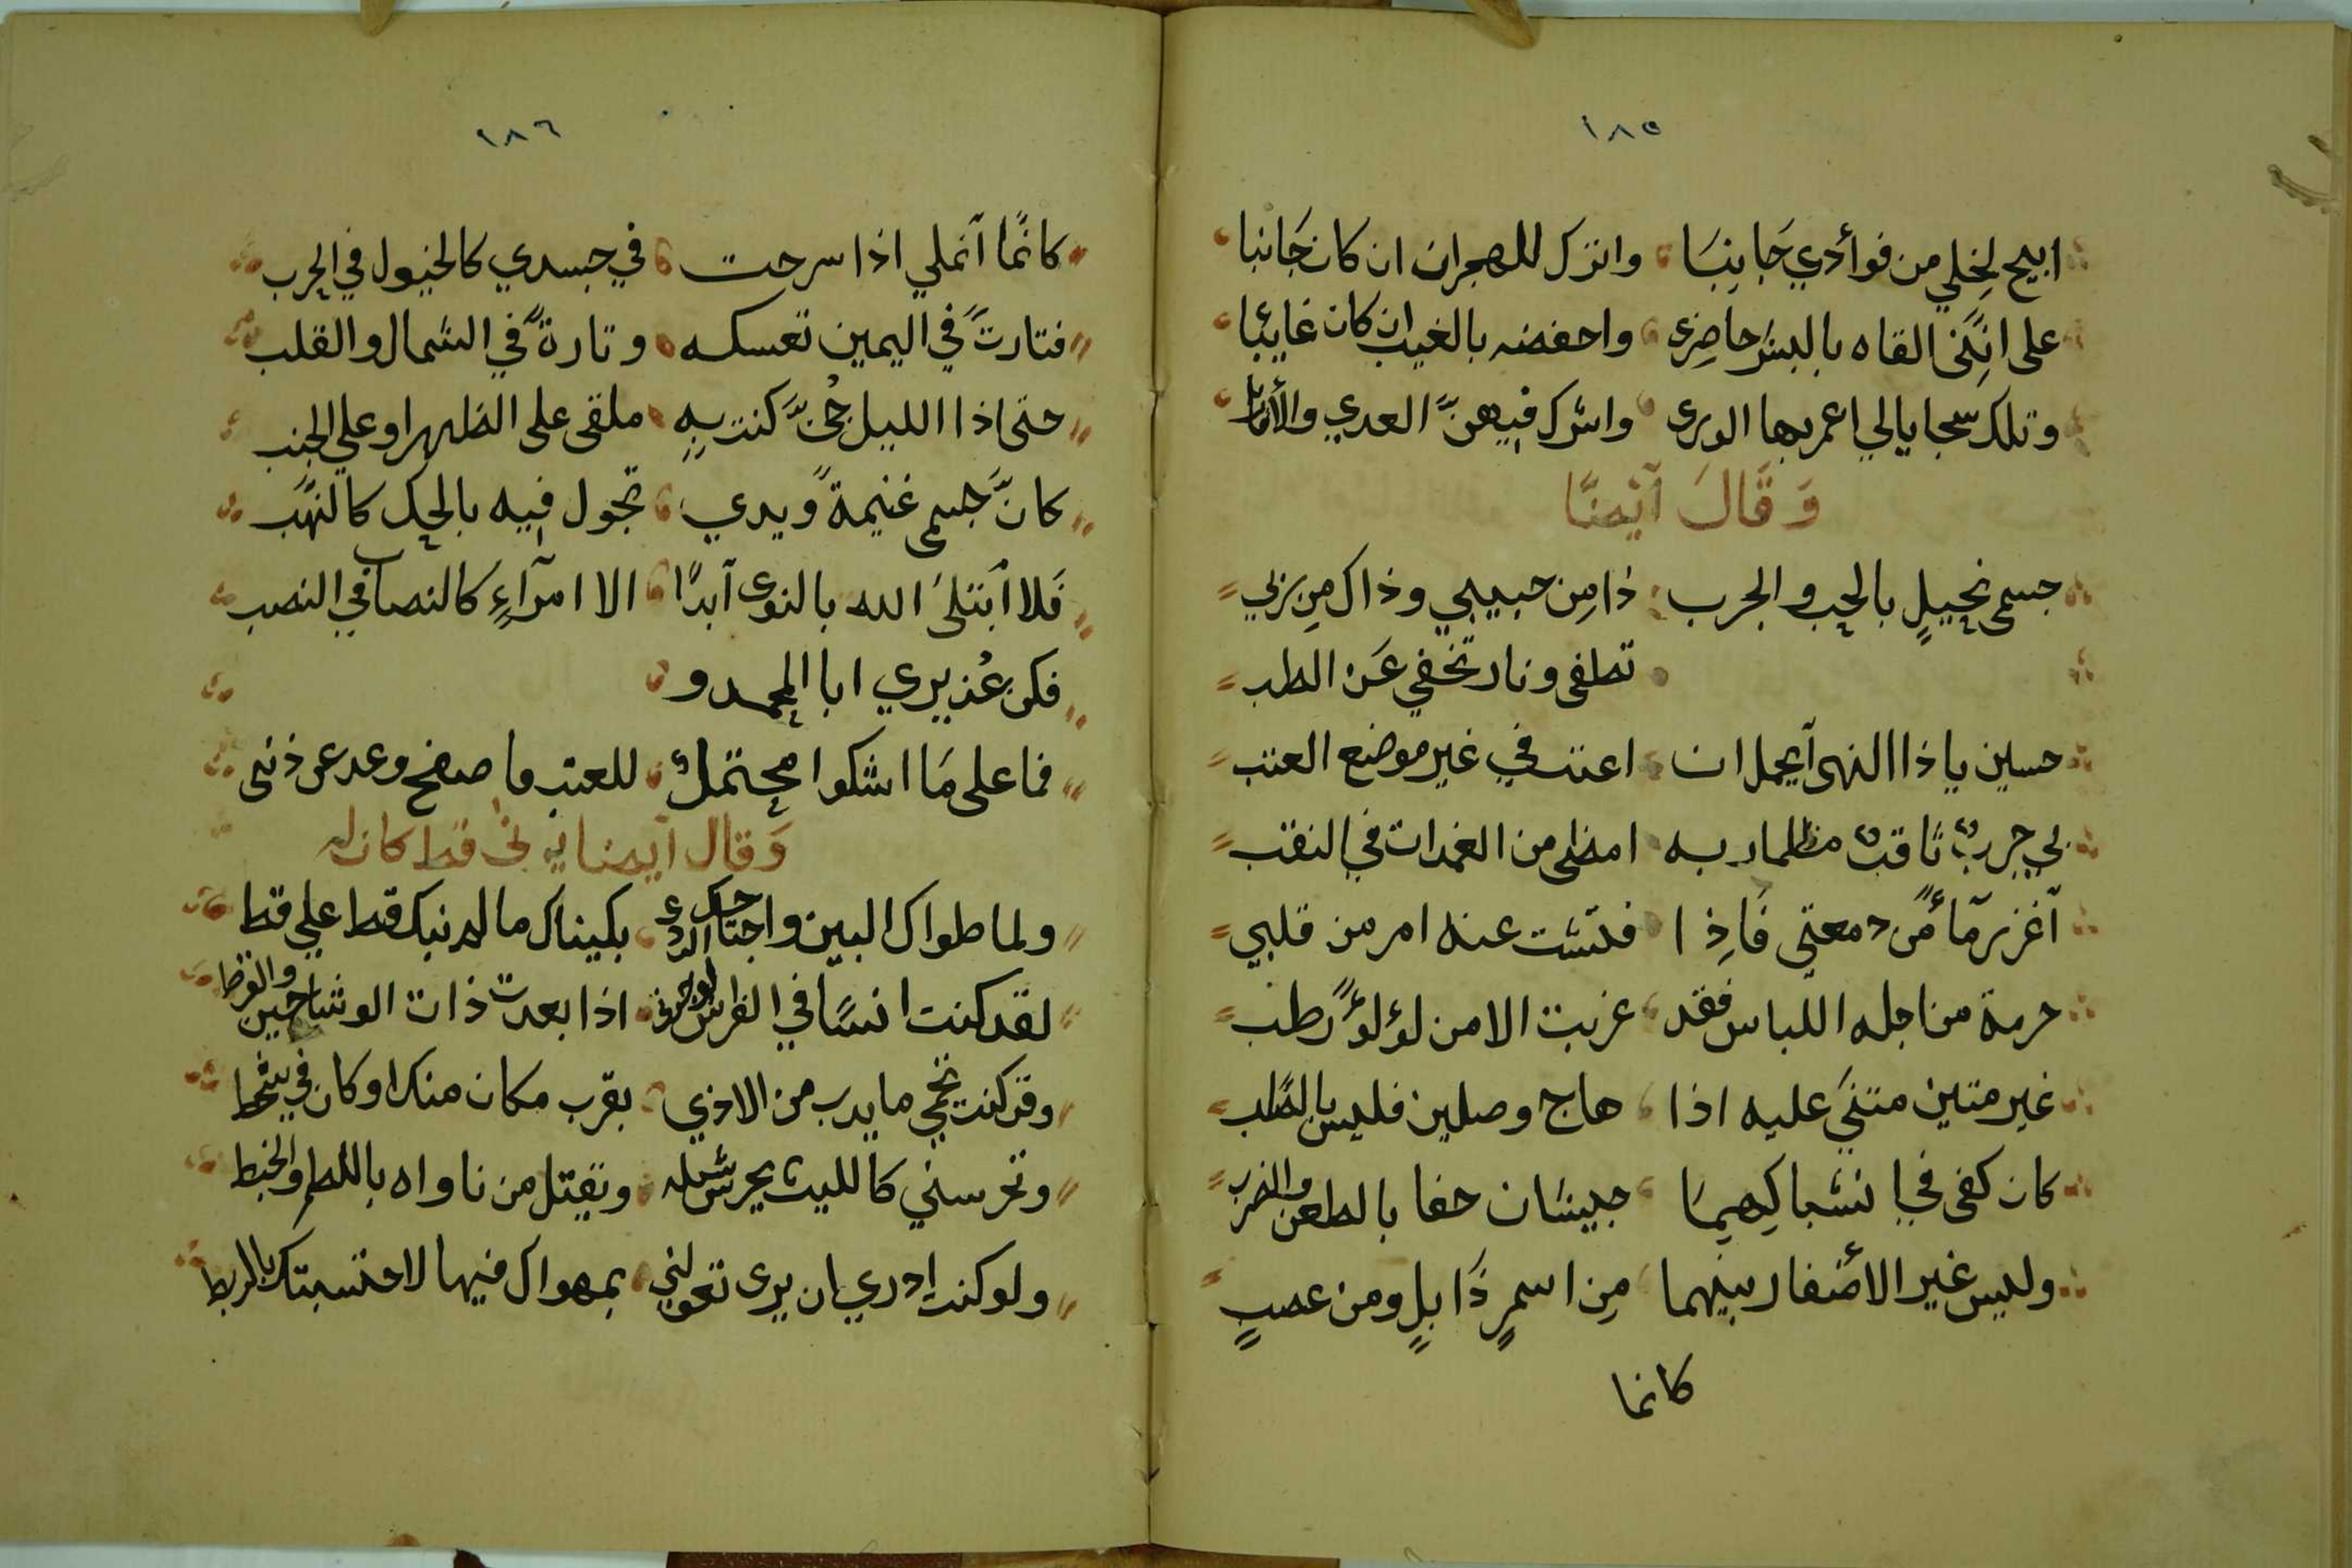 ١٨٥
ابيح لِخلي من فوأدي جَانبَا واترك للهجران ان كان جَانبا
على انَّني القاه بالبشر حاضرى واحفضه بالغيب ان كان غايبًا
وتلك سجايا لي اعمر بها الورى واشرك فيهنَّ العدي
وَقَالَ آيْضًا
جسمى نحيلٍ بالحب والجرب ذا مِن حبيبي وذاك مِن ربي
تطفى ونار تخفي عَن الطب
حسين ياذا النهى آيجمل ان اعتب في غير موضع العتب
بي جربٌ ثاقبٌ امضى من الغمدات في النقب
دمعتي فَاِذا فتشت عنه امر من قلبي
حرمة من اجله اللباس فقد عريت الا من لؤلؤً رطب
غير متين متنَي عليه اذا هاج وصلين فليس بالصَّلب
كان كفى في انشباكِهِمَا جيشان حفا بالطعن والضرب
وليس غير الأضفار بينهما مِن اسمرٍ ذَابلٍ ومن عصبٍ
كانما
١٨٦
كانمَّا آنملي اذا سرحت في جسدي كالخيول في الحرب
فتارتً في اليمين تعسكه وتارةً في الشمال والقلب
حتى اذا الليل جُنَّ كنت بِهِ ملقى على الظهر او على الجنب
كانَّ جسمى غنيمةً ويدي تجول فيه بالحك كالنهَب
فَلا ابتلىَ الله بالنوى آبدًا الا امرآءٍ كالنصاب في النصب
فكن عُذيري ابا المحمد و
فما على مَا اشكوا محتملٌ للعتب ما صفح وعد عن ذنبى
وَقال آيضا يرثى قط كان له
ولما طواك البين واجتاحك الردى بكيناك ما لم نبك قط على قط
لقد كنت انسًا في الفراش لوحدتى اذا بعدت ذات الوشاحين والقرط
وقد كنت تحمي ما يدب من الاذي بقرب مكان منك او كان في شحط
وتحرسني كالليث يحرس شبله ويقتل من ناواه باللطم والخبط
ولو كنت ادري ان يرى تخونني بمهواك فيها لاحتسبتك بالربط